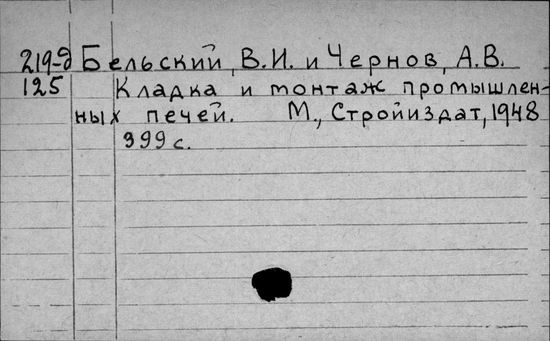 219-д Бельский, В.И. и Чернов, А.В.
125 Кладка и монтаж промышлен-
ных печей. М., Стройиздат, 1948
399 с.